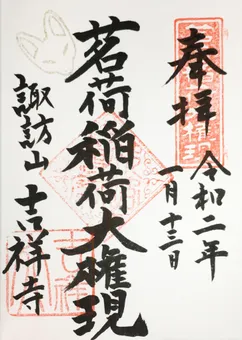 奉拝
令和二年
一月十三日
茗荷稲荷大権現
諏訪山吉祥寺